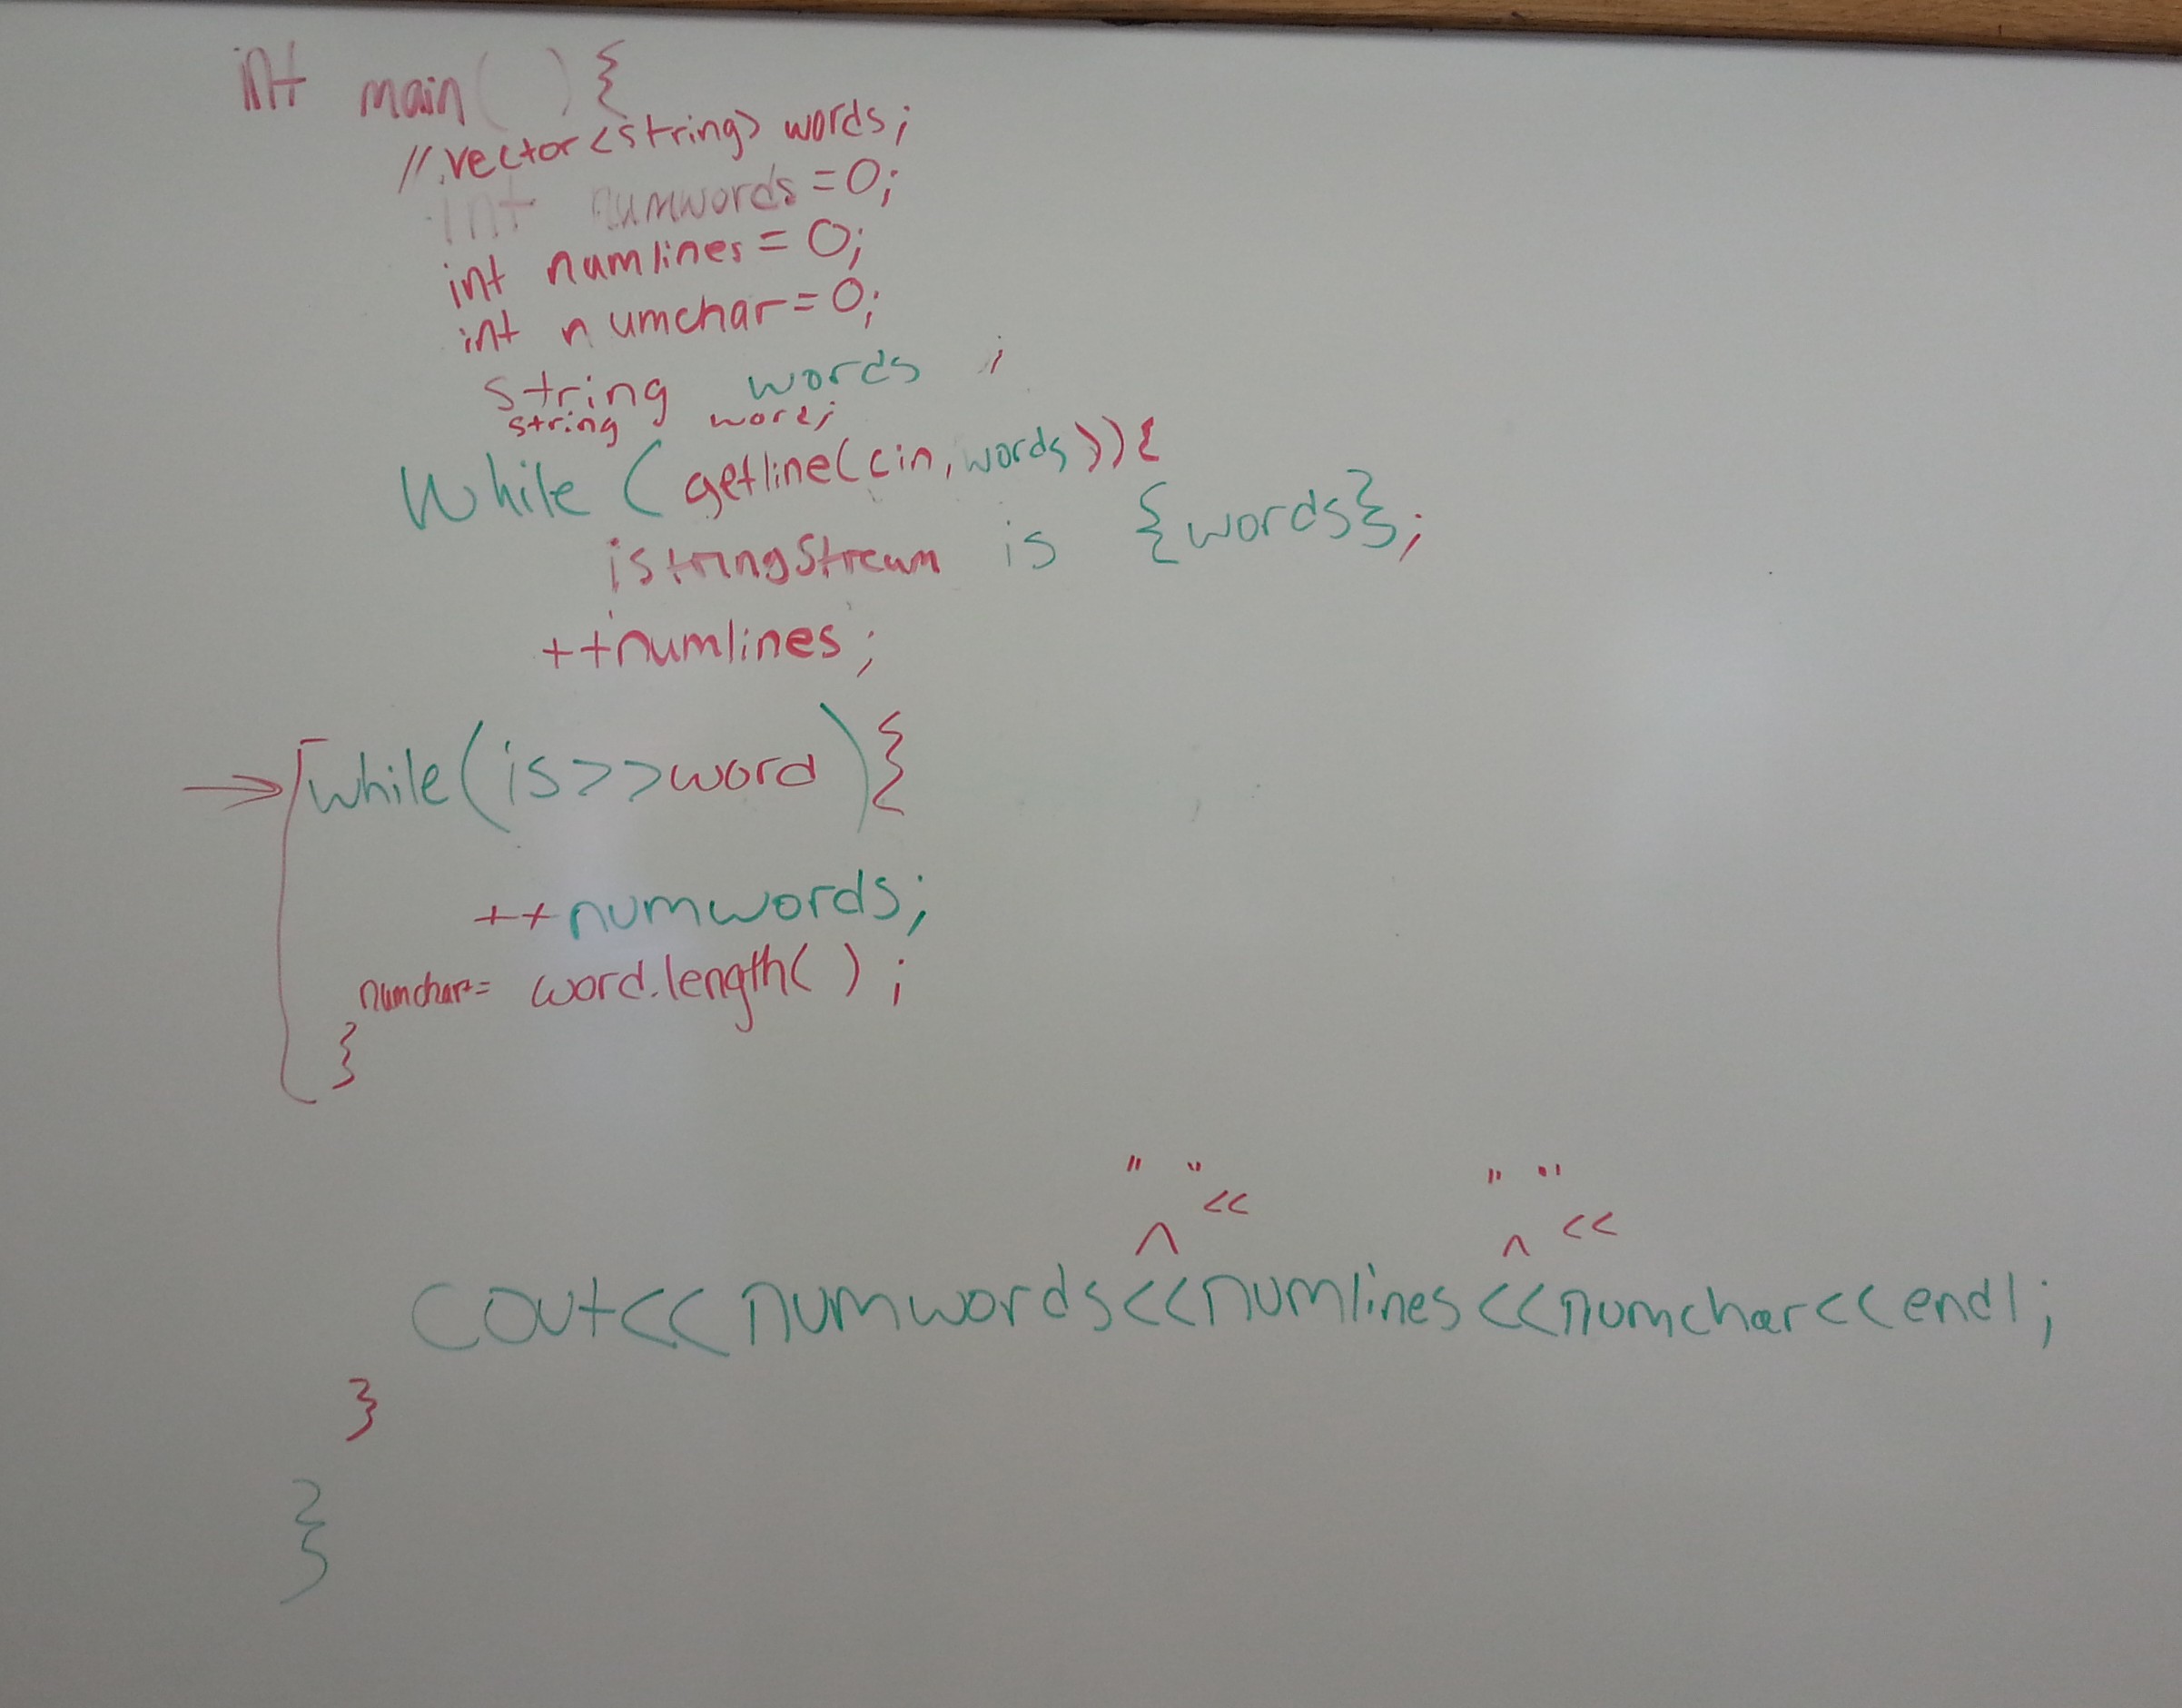 int main( ) {
//vector<string> words;
int numwords = 0;
int numlines = 0;
int numchar = 0;
string words ;
string word;
While (getline(cin, words)){
istringStream is {words};
++numlines;
while(is>>word){
++numwords;
numchar+= word.length( );
}
" " <<   " " <<
^   ^
cout<< numwords<<numlines<<numchar<<endl;
}
}